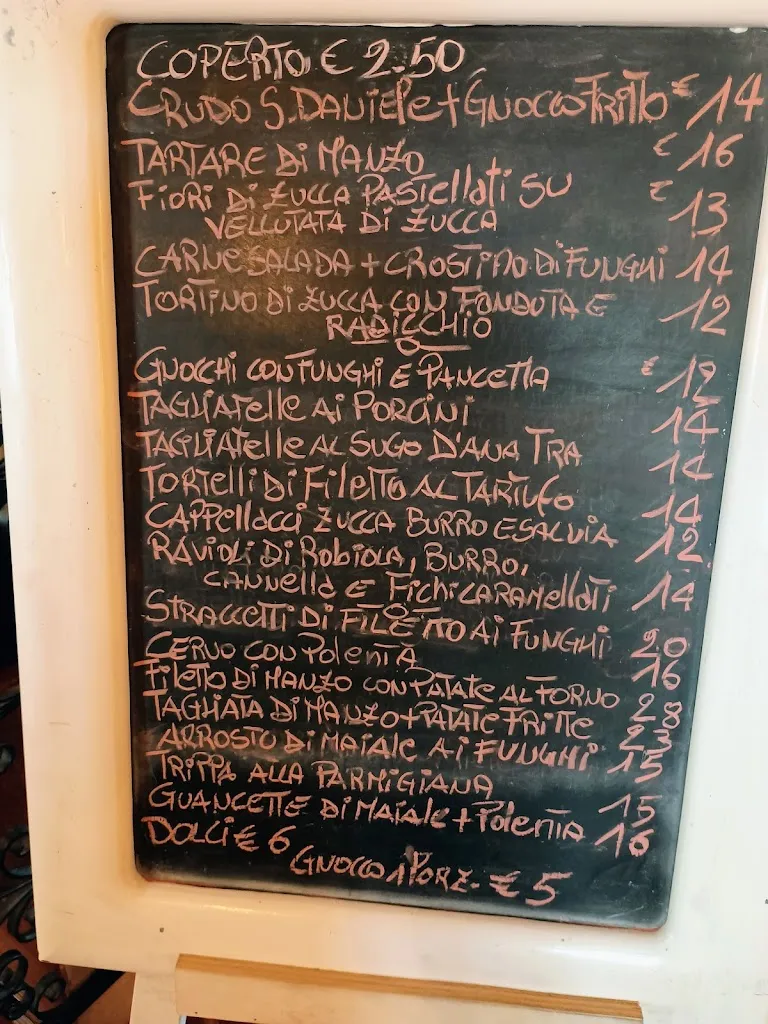 COPERTO € 2.50
CRUDO S. DANIELE + GNOCCO FRITTO € 14
TARTARE DI MANZO € 16
FIORI DI ZUCCA PASTELLATI SU € 13
VELLUTATA DI ZUCCA
CARNE SALADA + CROSTINO DI FUNGHI 14
TORTINO DI ZUCCA CON FONDUTA E 12
RADICCHIO
GNOCCHI CON FUNGHI E PANCETTA € 12
TAGLIATELLE AI PORCINI 14
TAGLIATELLE AL SUGO D'ANATRA 14
TORTELLI DI FILETTO AL TARTUFO 14
CAPPELLACCI ZUCCA BURRO E SALVIA 12
RAVIOLI DI ROBIOLA, BURRO,
CANNELLA E FICHI CARAMELLATI 14
STRACCETTI DI FILETTO AI FUNGHI 20
CERVO CON POLENTA 16
FILETTO DI MANZO CON PATATE AL FORNO 28
TAGLIATA DI MANZO + PATATE FRITTE 23
ARROSTO DI MAIALE AI FUNGHI 15
TRIPPA ALLA PARMIGIANA 15
GUANCETTE DI MAIALE + POLENTA 16
DOLCI € 6
GNOCCO 1 PORZ. € 5